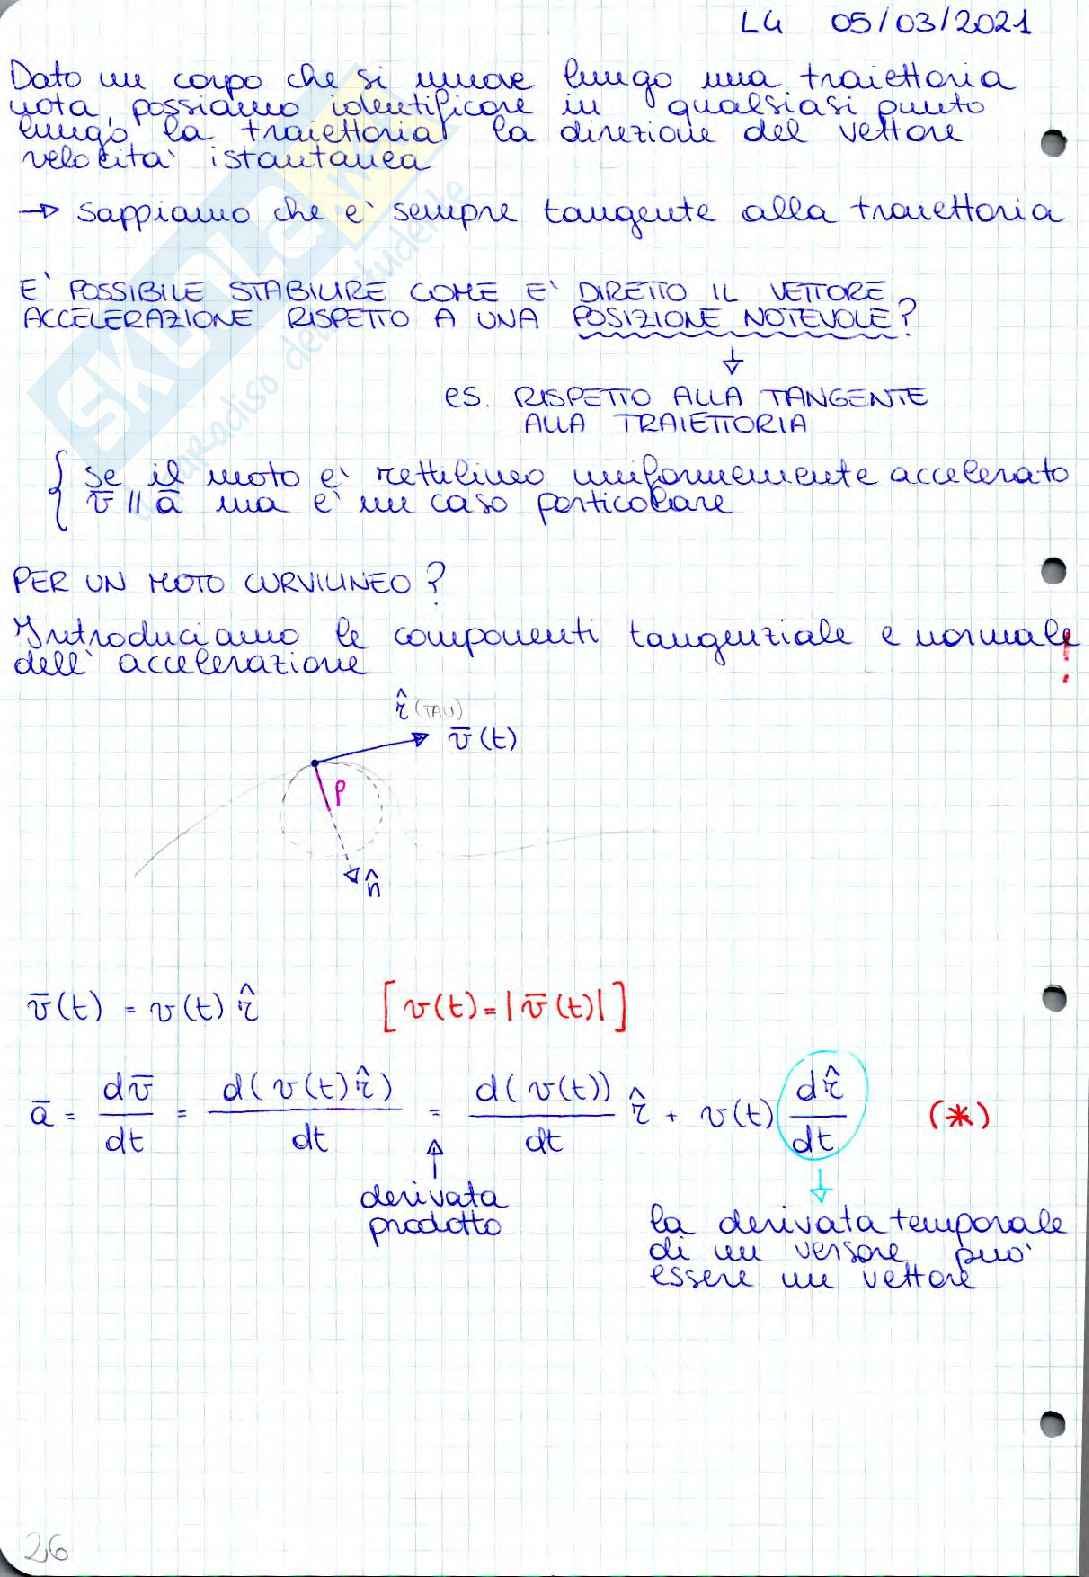 L4 05/03/2021
Dato un corpo che si muove lungo una traiettoria
nota, possiamo identificare in qualsiasi punto
lungo la traiettoria la direzione del vettore
velocità istantanea
→ sappiamo che è sempre tangente alla traiettoria
E' POSSIBILE STABILIRE COME E' DIRETTO IL VETTORE
ACCELERAZIONE RISPETTO A UNA POSIZIONE NOTEVOLE?
es. RISPETTO ALLA TANGENTE
ALLA TRAIETTORIA
{ se il moto è rettilineo uniformemente accelerato
v̄ // ā ma è un caso particolare
PER UN MOTO CURVILINEO?
Introduciamo le componenti tangenziale e normale !
dell'accelerazione
τ̂ (TAU)
v̄(t)
ρ
n̂
v̄(t) = v(t) τ̂ [v(t)=|v̄(t)|]
ā = dv̄/dt = d(v(t)τ̂)/dt = d(v(t))/dt τ̂ + v(t) dτ̂/dt (*)
derivata
prodotto
la derivata temporale
di un versore può
essere un vettore
26
SKUOLA
paradiso dello studente